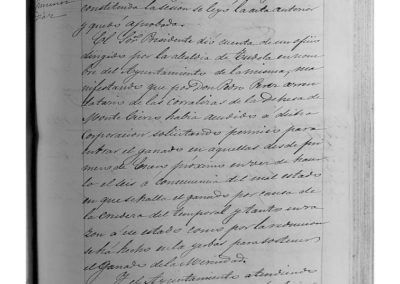 constituida la sesion se leyó la acta anterior
y quedó aprobada.
El Sor. Presidente dió cuenta de un oficio
dirigido por la alcaldia de Tudela en nom
bre del Ayuntamiento de la misma, ma
nifestando que por Don Pedro Perez arren
datario de las corralizas de la Dehesa de
Monte Cierzo habia acudido a dicha
Corporacion solicitando permiso para
entrar el ganado en aquellas desde pri
mero de Enero proximo en vez de hacer
lo el seis a consecuencia del mal estado
en que se halla el ganado por causa de
la crudeza del temporal y tanto en ra
zon a su estado como por la reduccion
se há hecho en la yerbas para sostener
el Ganado de la Merindad.
Y el Ayuntamiento atendiendo